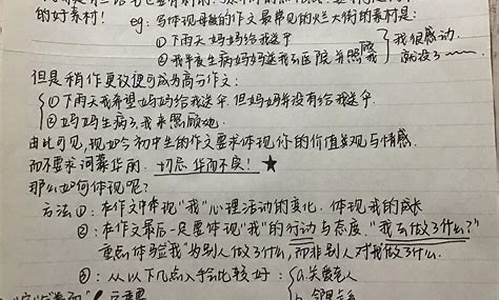 的好素材! eg: 写体现母爱的作文最常见的烂大街的素材是:
①下雨天妈妈给我送伞
②我半夜生病妈妈送我去医院并照顾我
我很感动.
就没了
但是稍作更改便可成为高分作文:
①下雨天我希望妈妈给我送伞.但妈妈并没有给我送伞
②妈妈生病了,我来照顾她.
由此可见,现如今初中生的作文要求体现你的价值美观与情感.
而不要求词藻华丽. 切忌 华而不实! ★
那么如何体现呢?
方法①: 在作文中体现"我"心理活动的变化. 体现我的成长
②: 在作文最后一定要体现"我"的行动与态度. "我去做了什么?"
重点体验我"为别人做了什么,而非别人对我做了什么.
③: 从以下几点入手会比较好:
a.关爱老人
b.